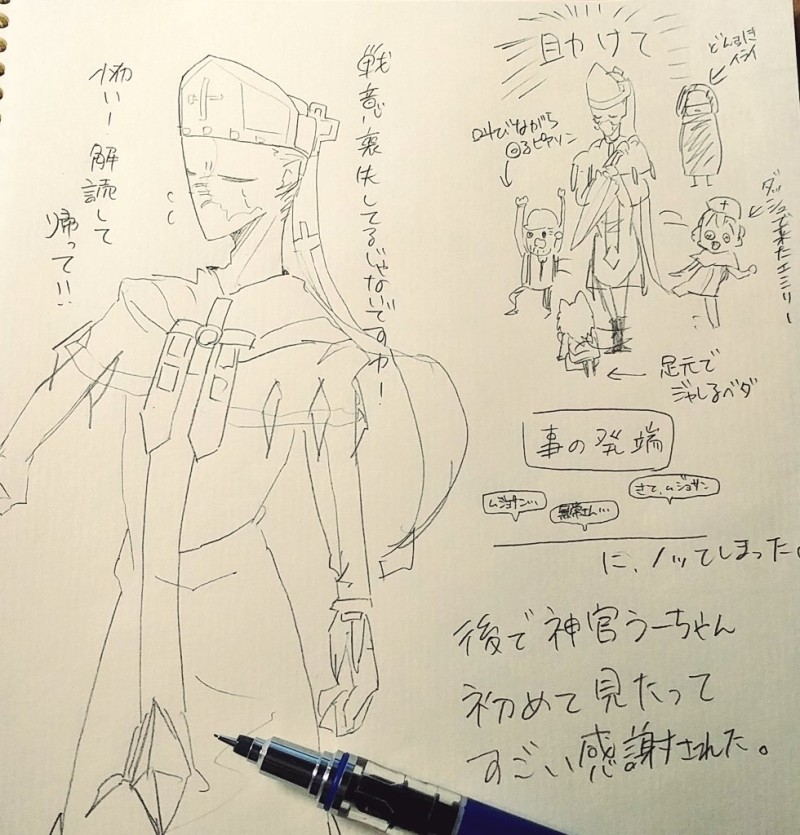 戦意喪失してるじゃないですカー!
怖いー!解読して
帰って!!
助けて
イライ
叫びながら
回るピアソン
ダッシュで来たエミリー
足元で
ジャしるベダ
事の発端
ムジョサン…
無常さん…
さて、ムジョサン
に、ノッてしまった。
後で神官うーちゃん
初めて見たって
すごい感謝された。